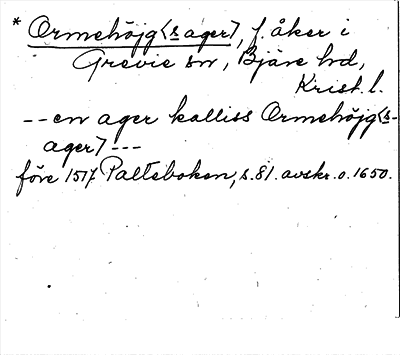 * Ormehöjg<s ager>, f. åker i
Grevie sn, Bjäre hd,
Krist. l.
-- en ager kalliss Ormehöjg<s-
ager> ---
före 1517 Palteboken, s. 81. avskr. o. 1650.